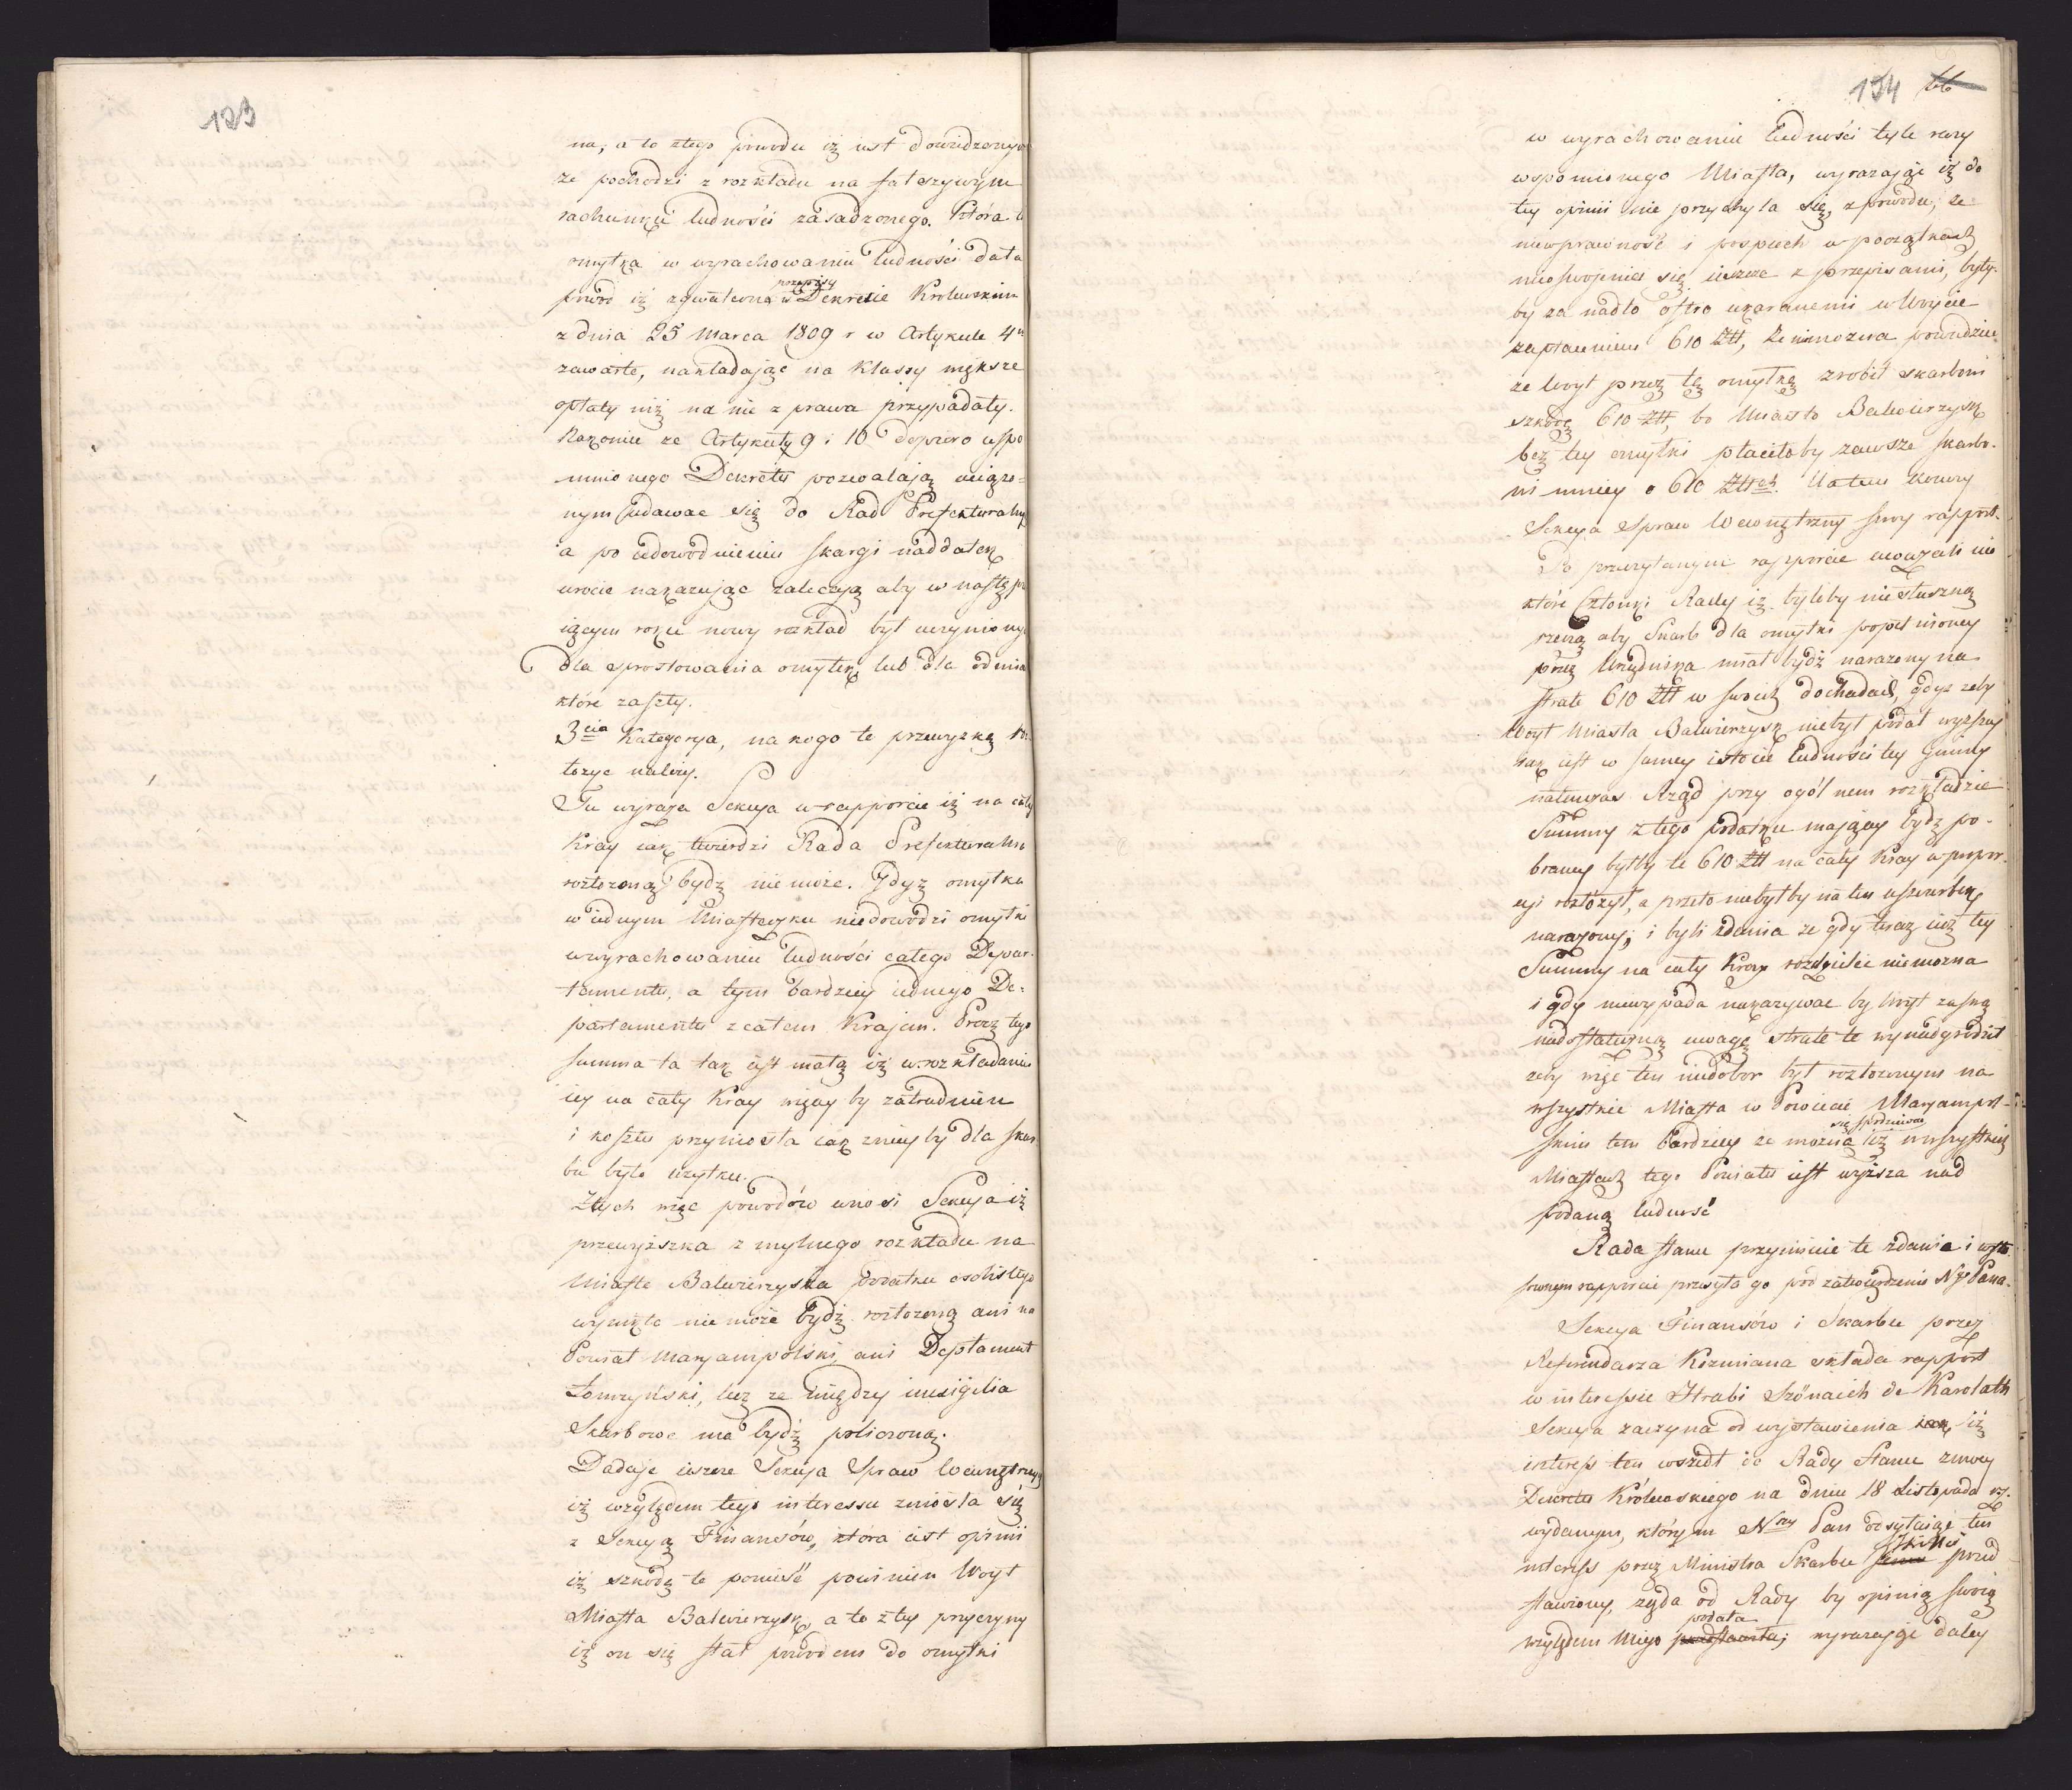 123
na, a to z tego powodu iż iest dowiedzonym
że pochodzi z rozkładu na fałszywym
rachunku ludności zasadzonego. Która to
omyłka w wyrachowaniu ludności dała
powod iż zgwałcono przepisy w Dekrecie Królewskim
z dnia 25 Marca 1809 r w Artykule 4m
zawarte, nakładaiąc na Klassy większe
opłaty niż na nie z prawa przypadały.
Nakoniec że Artykuły 9 i 10 dopiero wspo
mnionego Dekretu pozwalaią uciążo=
nym udawac się do Rad Prefekturalny
a po udowodnieniu skargi naddatek
wrócic nakazuiąc zalecaią aby w następ
iącym roku nowy rozkład był uczyniony
dla sprostowania omyłek lub dla odmia
które zaszły.
3cia Kategorya, na kogo te przewyżkę ro
łożyc należy.
Tu wyraża Sekcya w rapporcie iż na cały
Kray iak twierdzi Rada Prefekturalna
rozłożoną bydz nie może. Gdyż omyłka
w iednym Miasteczku niedowodzi omyłki
w wyrachowaniu ludności całego Depar-
tamentu, a tym bardziey iednego De=
partamentu z całem Kraiem. Procz tego
summa ta tak iest małą iż w rozkładaniu
iey na cały Kray więcey by zatrudnien
i kosztu przyniosła iak zniey by dla skar
bu było użytku.
Z tych więc powodów wnosi Sekcya iż
przewyższka z mylnego rozkładu na
Miasto Balwierzyska podatku osobistego
wynikła nie może bydź rozłożoną ani na
Powiat Maryampolski, ani Deptament
Łomzyński, lecz że między inexigilia
Skarbowe ma bydź policzoną.
Dodaje ieszcze Sekcya Spraw Wewnętrzny
iż względem tego interessu zniosła się
z Sekcyą Finansów, która iest opinii
iż szkodę te ponieść powinien Woyt
Miasta Balwierzysk, a to z tey przyczyny
iż on się stał powodem do omyłki
134 66
w wyrachowaniu ludności tyle razy
wspomionego Miasta, wyrażając iż do
tey opinii nie przychyla się, z powodu, że
niewprawność i pospiech w początkach
nieoswojenia się ieszcze z przepisami, były-
by za nadto ostro ukaranemi w Woycie
zapłaceniem 610 Złł, Że niemożna powiedziec
że Woyt przez tę omyłkę zrobił skarbowi
szkodę 610 Złł, bo Miasto Balwierzysk
bez tey omyłki płaciłoby zawsze skarbo-
wi mniey o 610 Złłch. Na tem kończy
Sekcya Spraw Wewnętrzny swoy rapport.
Po przeczytanym rapporcie uważali nie
które Członki Rady iż byłoby niesłuszną
rzeczą aby Skarb dla omyłki popełnioney
przez Urzędnika miał bydź narażony na
stratę 610 Złł w swoich dochodach, gdyż żeby
Woyt Miasta Balwierzysk niebył podał wyższey
iak iest w samey istocie ludności tey Gminy
natenczas Rząd przy ogólnem rozkładzie
Summy z tego podatku maiącey bydz po-
braney byłby te 610 Złł na cały Kray w propor-
cyi rozłożył, a przeto niebyłby na ten uszczerbek
narażony; i byli zdania że gdy teraz iuż tey
Summy na cały Kray rozdzielić niemożna
i gdy niewypada nakazywac by Woyt za swą
niedostateczną uwagę stratę te wynadgrodził
żeby więc ten niedobor był rozłożonym na
wszystkie Miasta w Powiecie Maryampol-
skim tem bardziey że można się spodziewac iż wwszystkich
Miastach tego Powiatu iest wyższa nad
podaną ludność
Rada stanu przyimuie te zdania i w sto
sownym rapporcie przesyła go pod zatwierdzenie Nygo Pana.
Sekcya Finansów i Skarbu przez
Referendarza Koźmiana składa rapport
w interessie Hrabi Szönaich de Karolath
Sekcya zaczyna od wystawienia iak, iż
interess ten wszedł do Rady Stanu z mocy
Dekretu Królewskiego na dniu 18 Listopada r.z.
wydanym, którym Nny Pan odsyłaiąc ten
interess przez Ministra Skarbu JKMci przed
stawiony, żąda od Rady by opinią swoią
względem niego podała przedstawiła; wyrażając daley